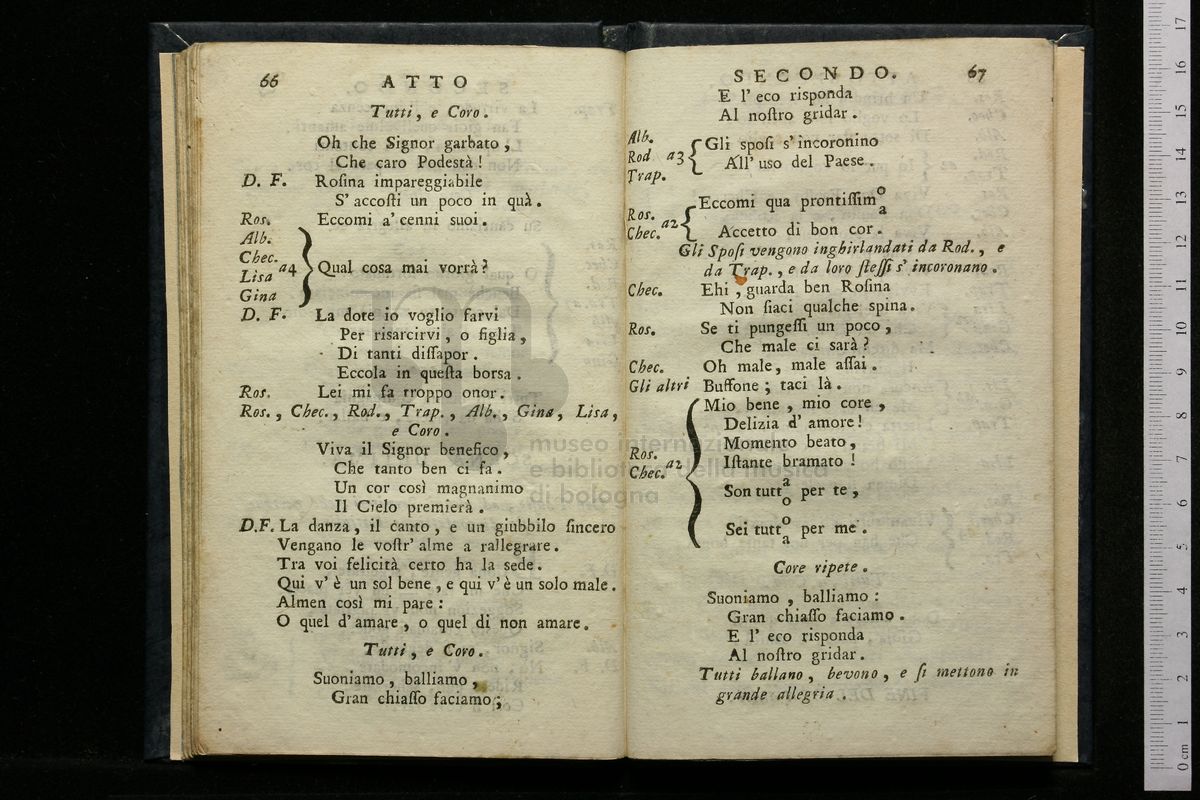 66 ATTO
Tutti, e Coro.
Oh che Signor garbato,
Che caro Podestà!
D. F. Rosina impareggiabile
S'accosti un poco in quà.
Ros. Eccomi a' cenni suoi.
Alb.
Chec.
Lisa a4 Qual cosa mai vorrà?
Gina
D. F. La dote io voglio farvi
Per risarcirvi, o figlia,
Di tanti dissapor.
Eccola in questa borsa.
Ros. Lei mi fa troppo onor.
Ros., Chec., Rod., Trap., Alb., Gina, Lisa,
e Coro.
Viva il Signor benefico,
Che tanto ben ci fa.
Un cor così magnanimo
Il Cielo premierà.
D.F. La danza, il canto, e un giubbilo sincero
Vengano le vostr' alme a rallegrare.
Tra voi felicità certo ha la sede.
Qui v'è un sol bene, e qui v'è un solo male.
Almen così mi pare:
O quel d'amare, o quel di non amare.
Tutti, e Coro.
Suoniamo, balliamo,
Gran chiasso faciamo;
SECONDO. 67
E l'eco risponda
Al nostro gridar.
Alb.
Rod a3 Gli sposi s'incoronino
Trap. All'uso del Paese.
Ros. a2 Eccomi qua prontissim o/a
Chec. Accetto di bon cor.
Gli Sposi vengono inghirlandati da Rod., e
da Trap., e da loro stessi s'incoronano.
Chec. Ehi, guarda ben Rosina
Non siaci qualche spina.
Ros. Se ti pungessi un poco,
Che male ci sarà?
Chec. Oh male, male assai.
Gli altri Buffone; taci là.
Mio bene, mio core,
Delizia d'amore!
Momento beato,
Ros. a2 Istante bramato!
Chec.
Son tutt a/o per te,
Sei tutt o/a per me.
Core ripete.
Suoniamo, balliamo:
Gran chiasso faciamo.
E l'eco risponda
Al nostro gridar.
Tutti ballano, bevono, e si mettono in
grande allegria.
museo internazionale
e biblioteca della musica
di bologna
0 cm 1 2 3 4 5 6 7 8 9 10 11 12 13 14 15 16 17